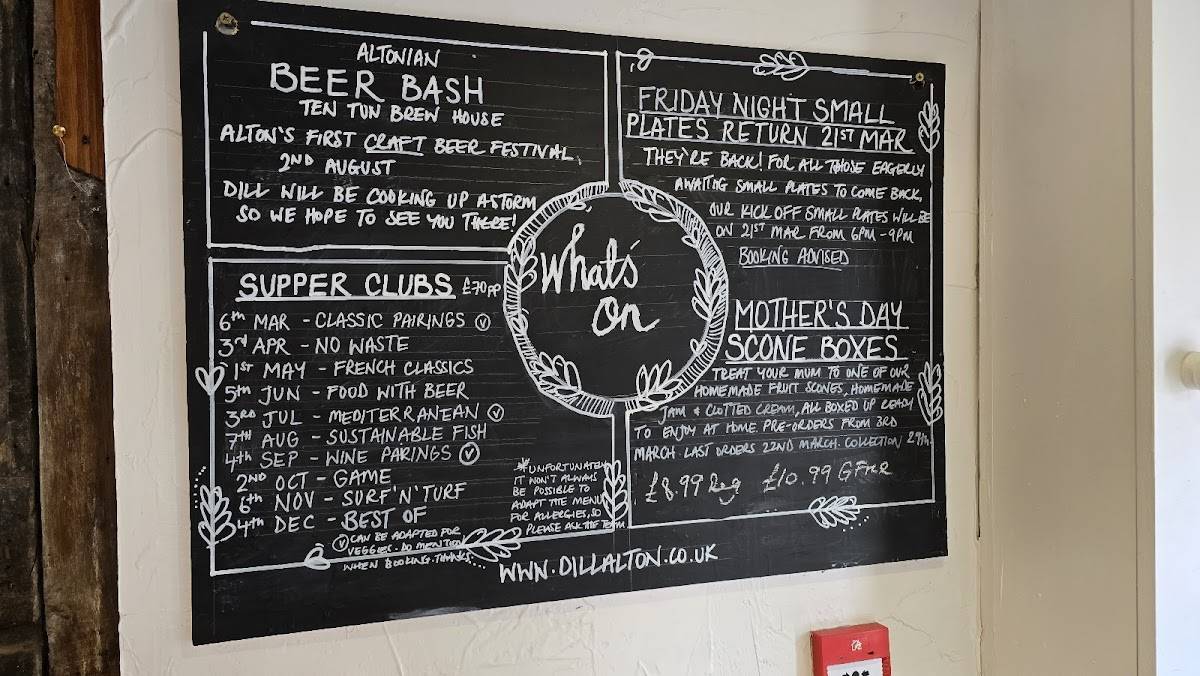 ALTONIAN
BEER BASH
TEN TUN BREW HOUSE
ALTON'S FIRST CRAFT BEER FESTIVAL,
2ND AUGUST
DILL WILL BE COOKING UP A STORM
SO WE HOPE TO SEE YOU THERE!
FRIDAY NIGHT SMALL
PLATES RETURN 21ST MAR
THEY'RE BACK! FOR ALL THOSE EAGERLY
AWAITING SMALL PLATES TO COME BACK,
OUR KICK OFF SMALL PLATES WILL BE
ON 21ST MAR FROM 6PM - 9PM
BOOKING ADVISED
What's
on
SUPPER CLUBS £70PP
6TH MAR - CLASSIC PAIRINGS Ⓥ
3RD APR - NO WASTE
1ST MAY - FRENCH CLASSICS
5TH JUN - FOOD WITH BEER
3RD JUL - MEDITERRANEAN Ⓥ
7TH AUG - SUSTAINABLE FISH
4TH SEP - WINE PARINGS Ⓥ
2ND OCT - GAME
6TH NOV - SURF'N'TURF
4TH DEC - BEST OF
Ⓥ CAN BE ADAPTED FOR
VEGGIES. DO MENTION
WHEN BOOKING. THANKS.
*UNFORTUNATELY
IT WON'T ALWAYS
BE POSSIBLE TO
ADAPT THE MENU
FOR ALLERGIES, SO
PLEASE ASK THE TEAM
MOTHER'S DAY
SCONE BOXES
TREAT YOUR MUM TO ONE OF OUR
HOMEMADE FRUIT SCONES, HOMEMADE
JAM & CLOTTED CREAM, ALL BOXED UP READY
TO ENJOY AT HOME. PRE-ORDERS FROM 3RD
MARCH. LAST ORDERS 22ND MARCH. COLLECTION 29th.
£8.99 Reg £10.99 GFree
WWW.DILLALTON.CO.UK